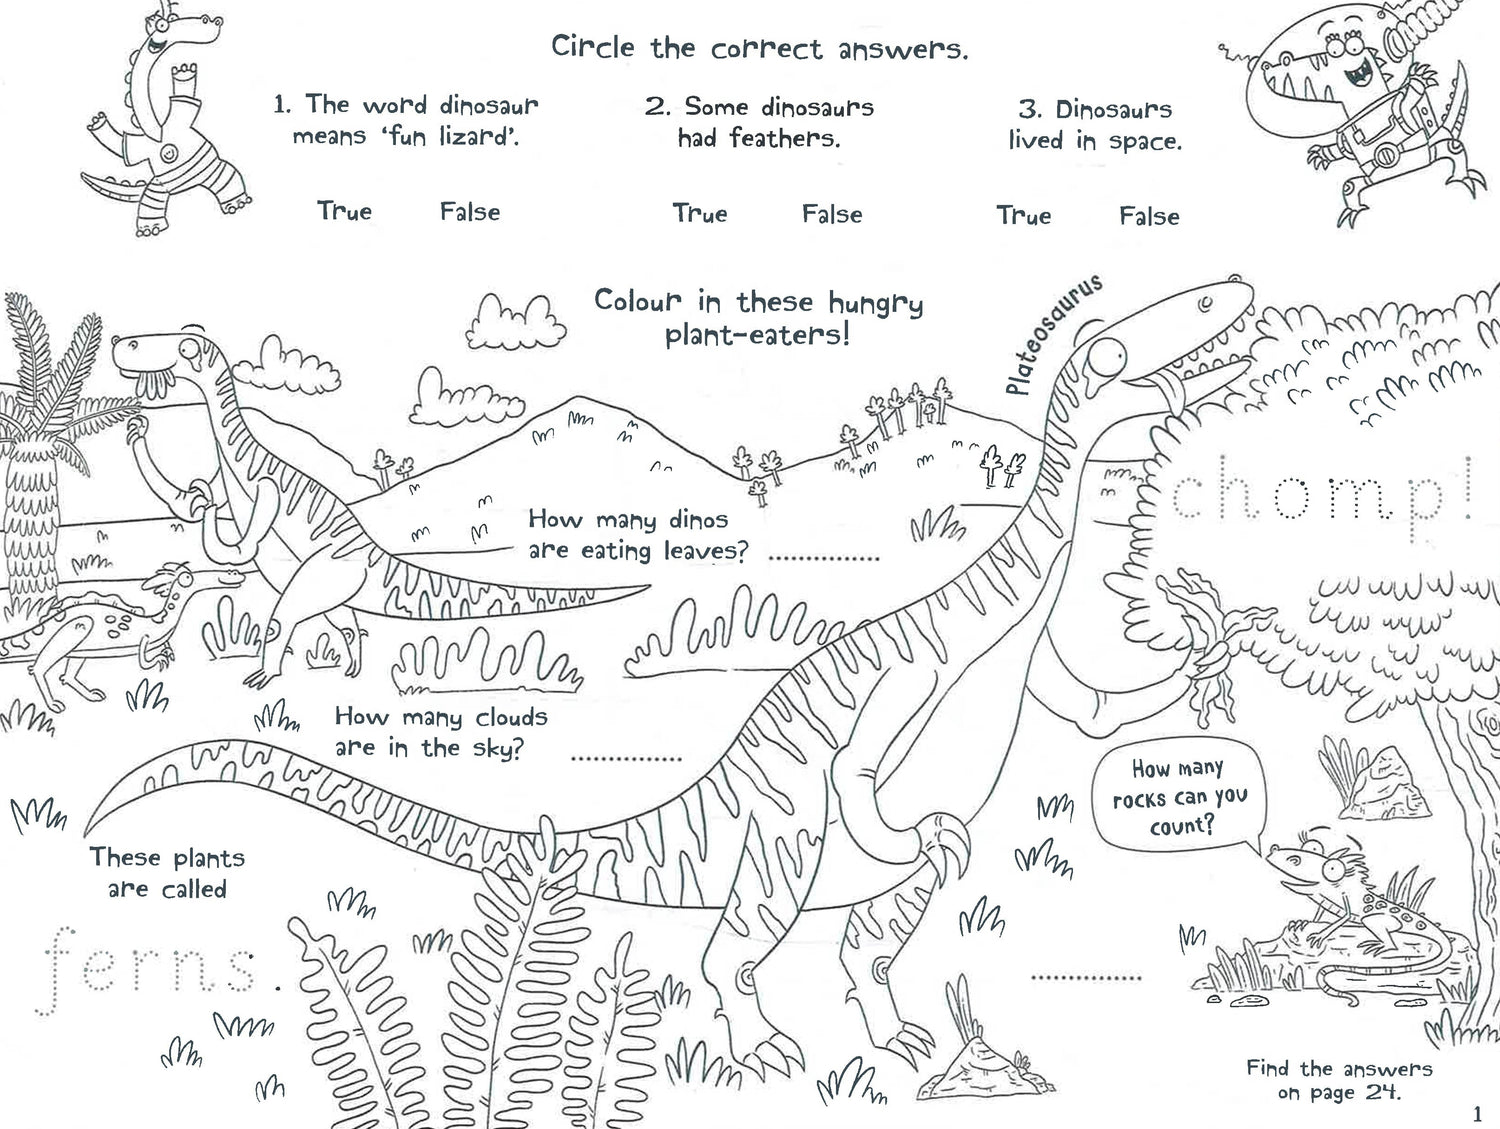 Circle the correct answers.
1. The word dinosaur
means ‘fun lizard’.
True False
2. Some dinosaurs
had feathers.
True False
3. Dinosaurs
lived in space.
True False
Colour in these hungry
plant-eaters!
Plateosaurus
chomp!
How many dinos
are eating leaves? ............
How many clouds
are in the sky? ............
How many
rocks can you
count?
............
These plants
are called
ferns.
Find the answers
on page 24.
1